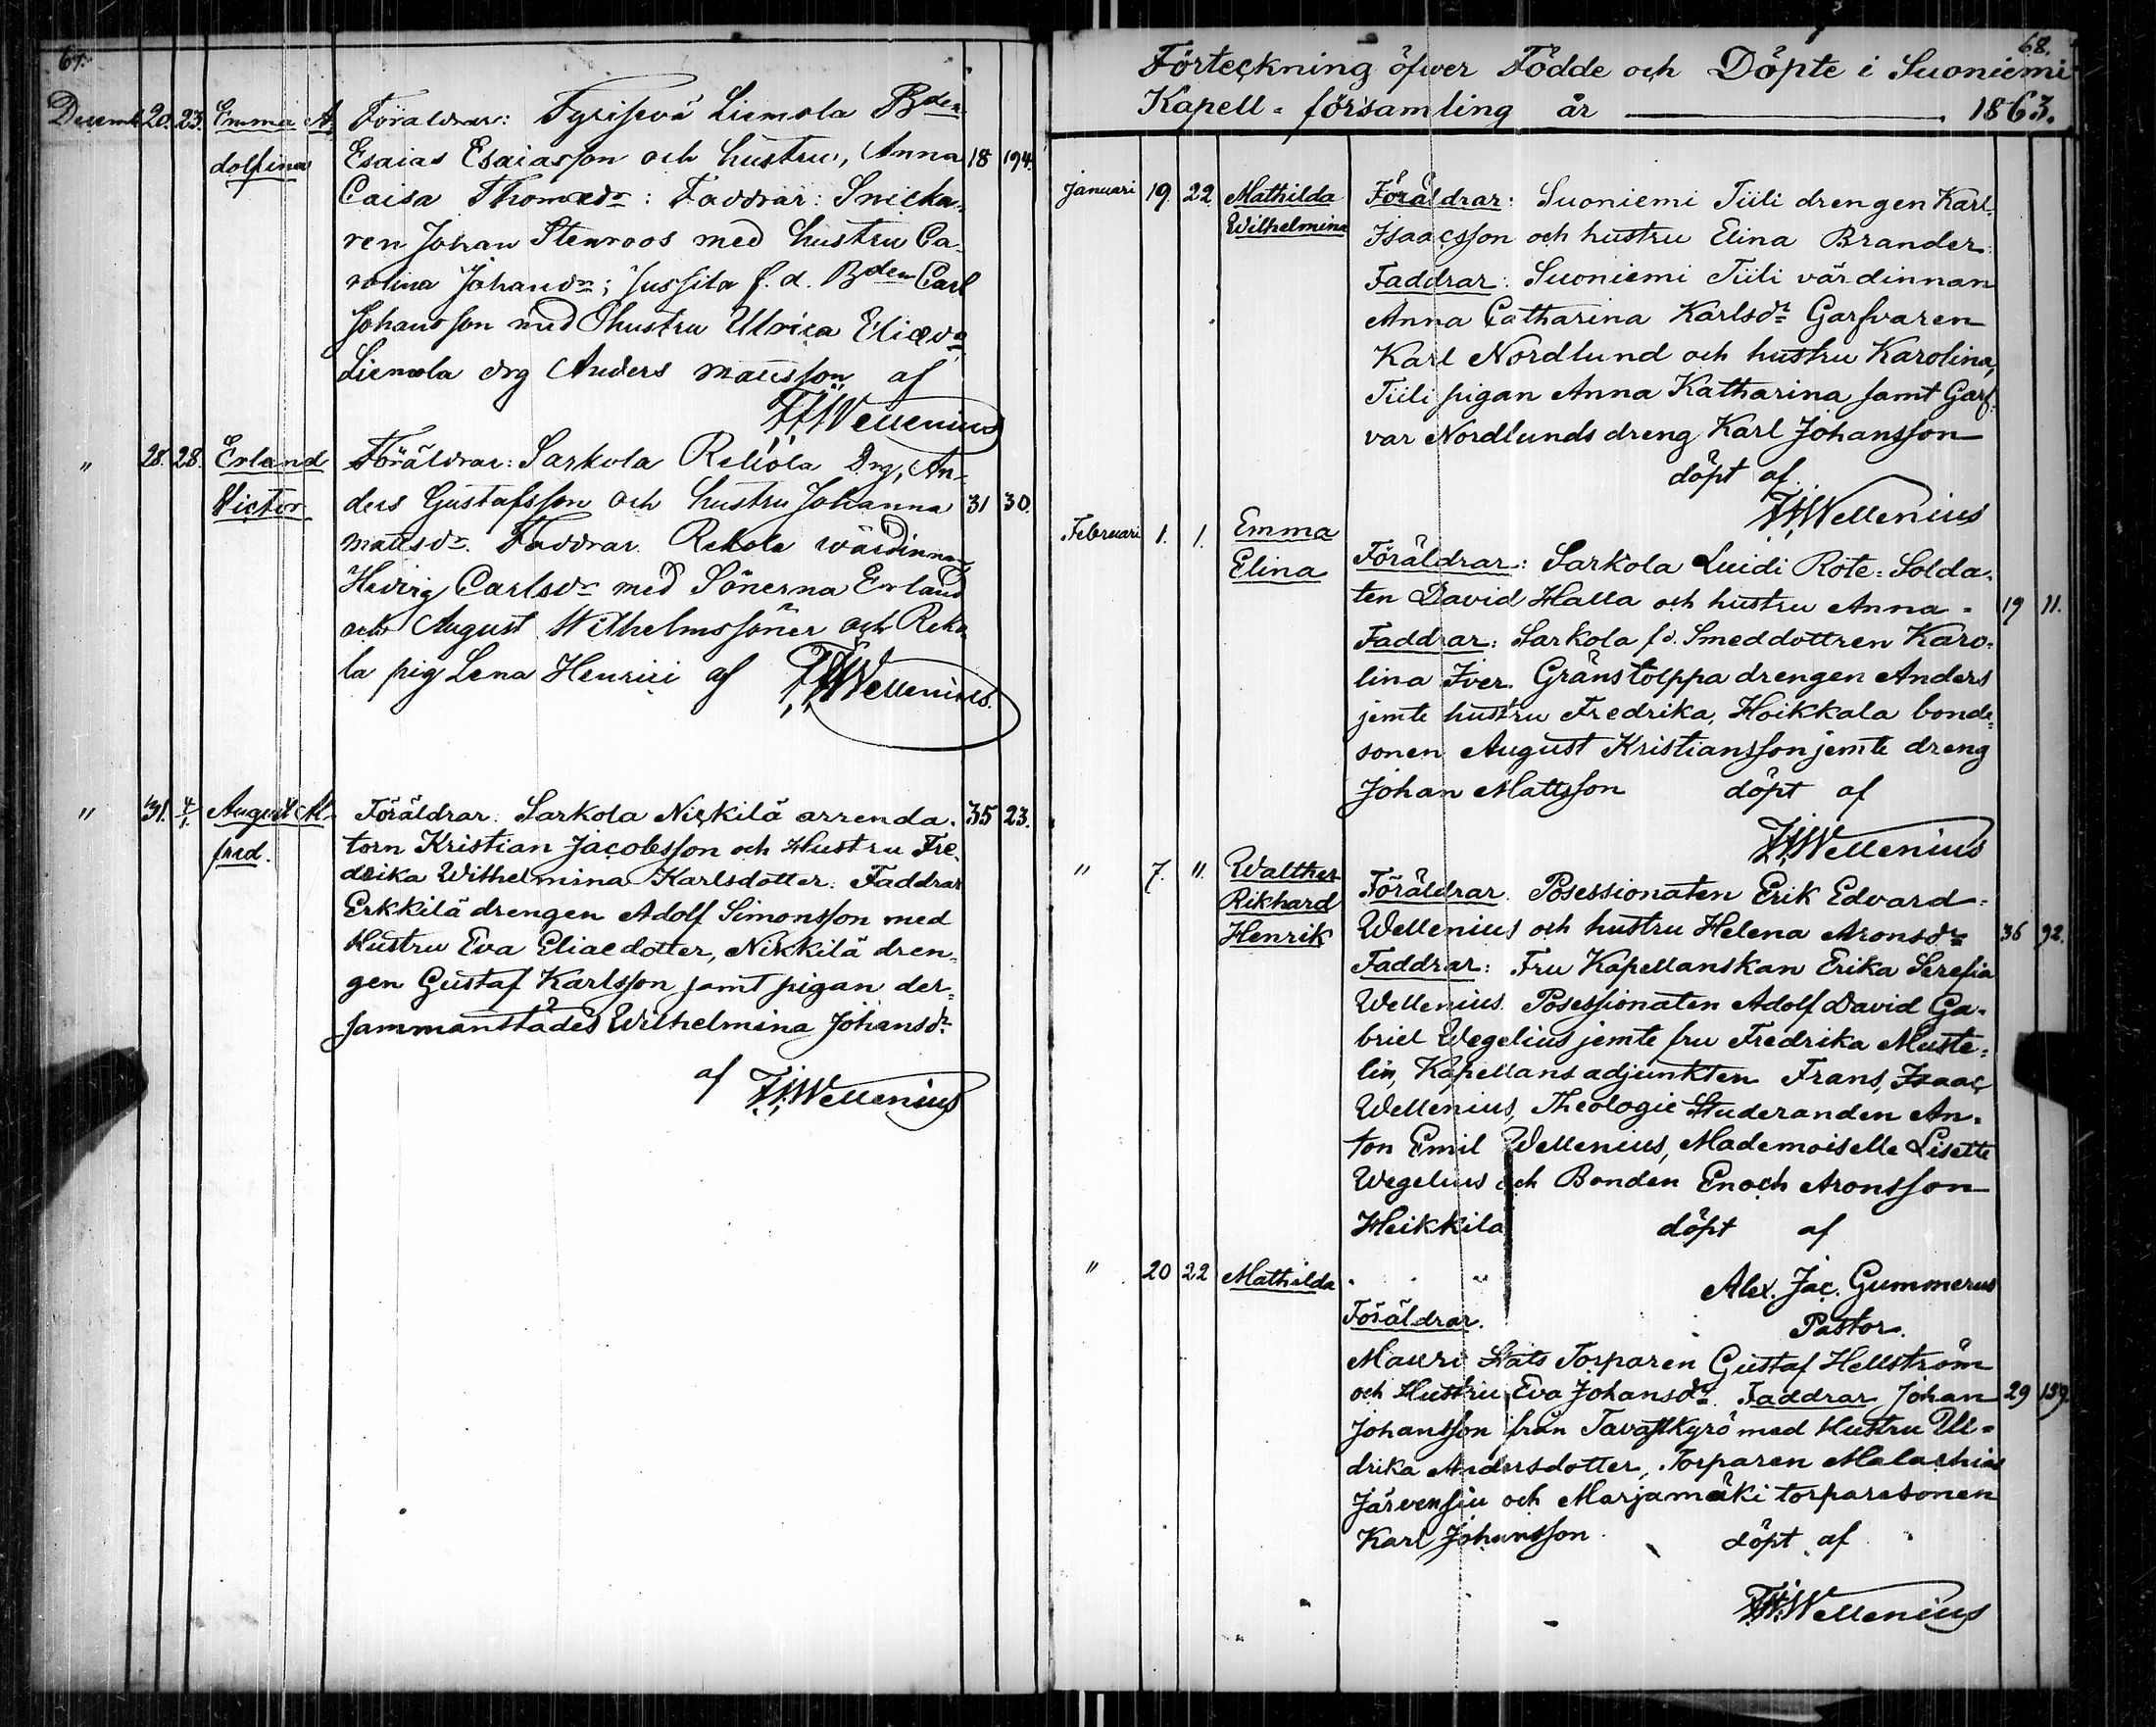 67.
Decemb. 20. 23. Emma A. Föräldrar: Tyrisevä Liemola Bden
dolfina Esaias Esaiasson och hustru, Anna 18 194.
Caisa Thomædr: Faddrar: Snicka-
ren Johan Stenroos med hustru Ca-
rolina Johansdr; Jussila f.d. Bden Carl
Johansson med hustru Ulrica Eliædr
Liemola drg Anders Mattsson af
F. I. Wellenius
" 28. 28. Erland Föräldrar: Sarkola Rekola Drg, An-
Victor ders Gustafsson och hustru Johanna 31 30.
Mattsdr. Faddrar. Rekola wärdinnan
Hedvig Carlsdr med Sönerna Erland
och August Wilhelmssöner och Reko
la pig Lena Henrici af F. I. Wellenius.
" 31. 4/1. August Al- Föräldrar: Sarkola Nickilä arrenda- 35 23.
fred. torn Kristian Jacobsson och Hustru Fre-
drika Wilhelmina Karlsdotter: Faddrar
Erkkilä drengen Adolf Simonsson med
Hustru Eva Eliaedotter, Nikkilä dren-
gen Gustaf Karlsson samt pigan der-
sammanstädes Wilhelmina Johansdr
af F. I. Wellenius
68.
Förteckning öfwer Födde och Döpte i Suoniemi
Kapell-församling år 1863.
Januari 19. 22. Mathilda Föräldrar: Suoniemi Tiili drengen Karl
Wilhelmina Isaacsson och hustru Elina Brander.
Faddrar: Suoniemi Tiili värdinnan
Anna Catharina Karlsdr Garfvaren
Karl Nordlund och hustru Karolina,
Tiili pigan Anna Katharina samt Garf-
var Nordlunds dreng Karl Johansson
döpt af.
F. I. Wellenius
Februari 1. 1. Emma
Elina Föräldrar: Sarkola Luidi Rote-Solda-
ten David Halla och hustru Anna - 19 11.
Faddrar: Sarkola f.d. Smeddottren Karo-
lina Iver. Gränstolppa drengen Anders
jemte hustru Fredrika, Hoikkala bonde-
sonen August Kristiansson jemte dreng
Johan Mattsson döpt af
F. I. Wellenius
" 7. 11. Walther
Rikhard Föräldrar. Posessionaten Erik Edvard
Henrik Wellenius och hustru Helena Aronsdr 36 92.
Faddrar: Fru Kapellanskan Erika Serefia
Wellenius. Posessionaten Adolf David Ga-
briel Wegelius jemte fru Fredrika Muste-
lin, Kapellans adjunkten Frans, Isaac
Wellenius, Theologie Studeranden An-
ton Emil Wellenius, Mademoiselle Lisette
Wegelius och Bonden Enoch Aronsson
Heikkila döpt af
" 20 22 Mathilda Alex. Jac. Gummerus
Föräldrar. Pastor.
Mauri Stats Torparen Gustaf Hellström
och Hustru Eva Johansdr. Faddrar Johan 29 159.
Johansson från Tavastkyrö med Hustru Ul-
drika Andersdotter, Torparen Malachias
Järvensiu och Marjamäki torparesonen
Karl Johansson. döpt af
F. I. Wellenius